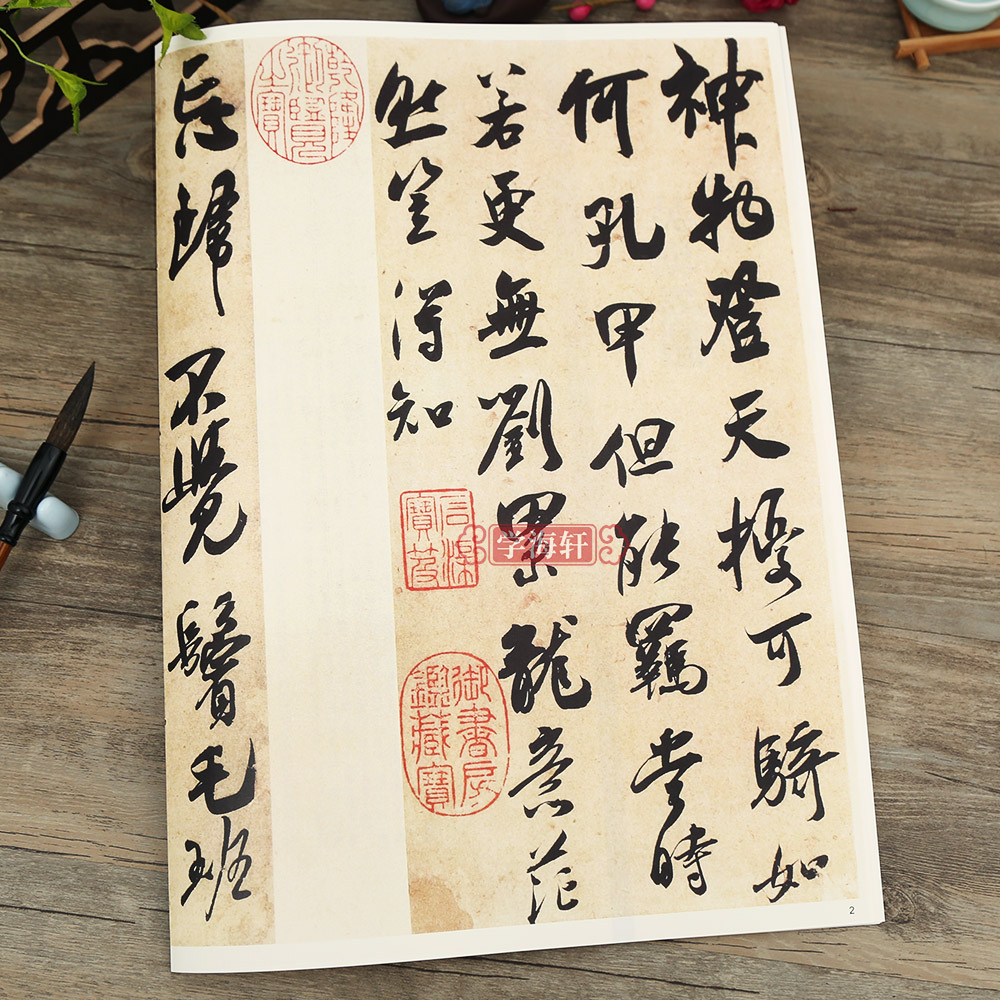 神物登天擾可騎如
何孔甲但能羈當時
若更無劉累龍意茫
然豈得知
石渠寶笈
御書房鑑藏寶
乾隆御覽之寶
忘歸不覺鬢毛班
学海轩
2